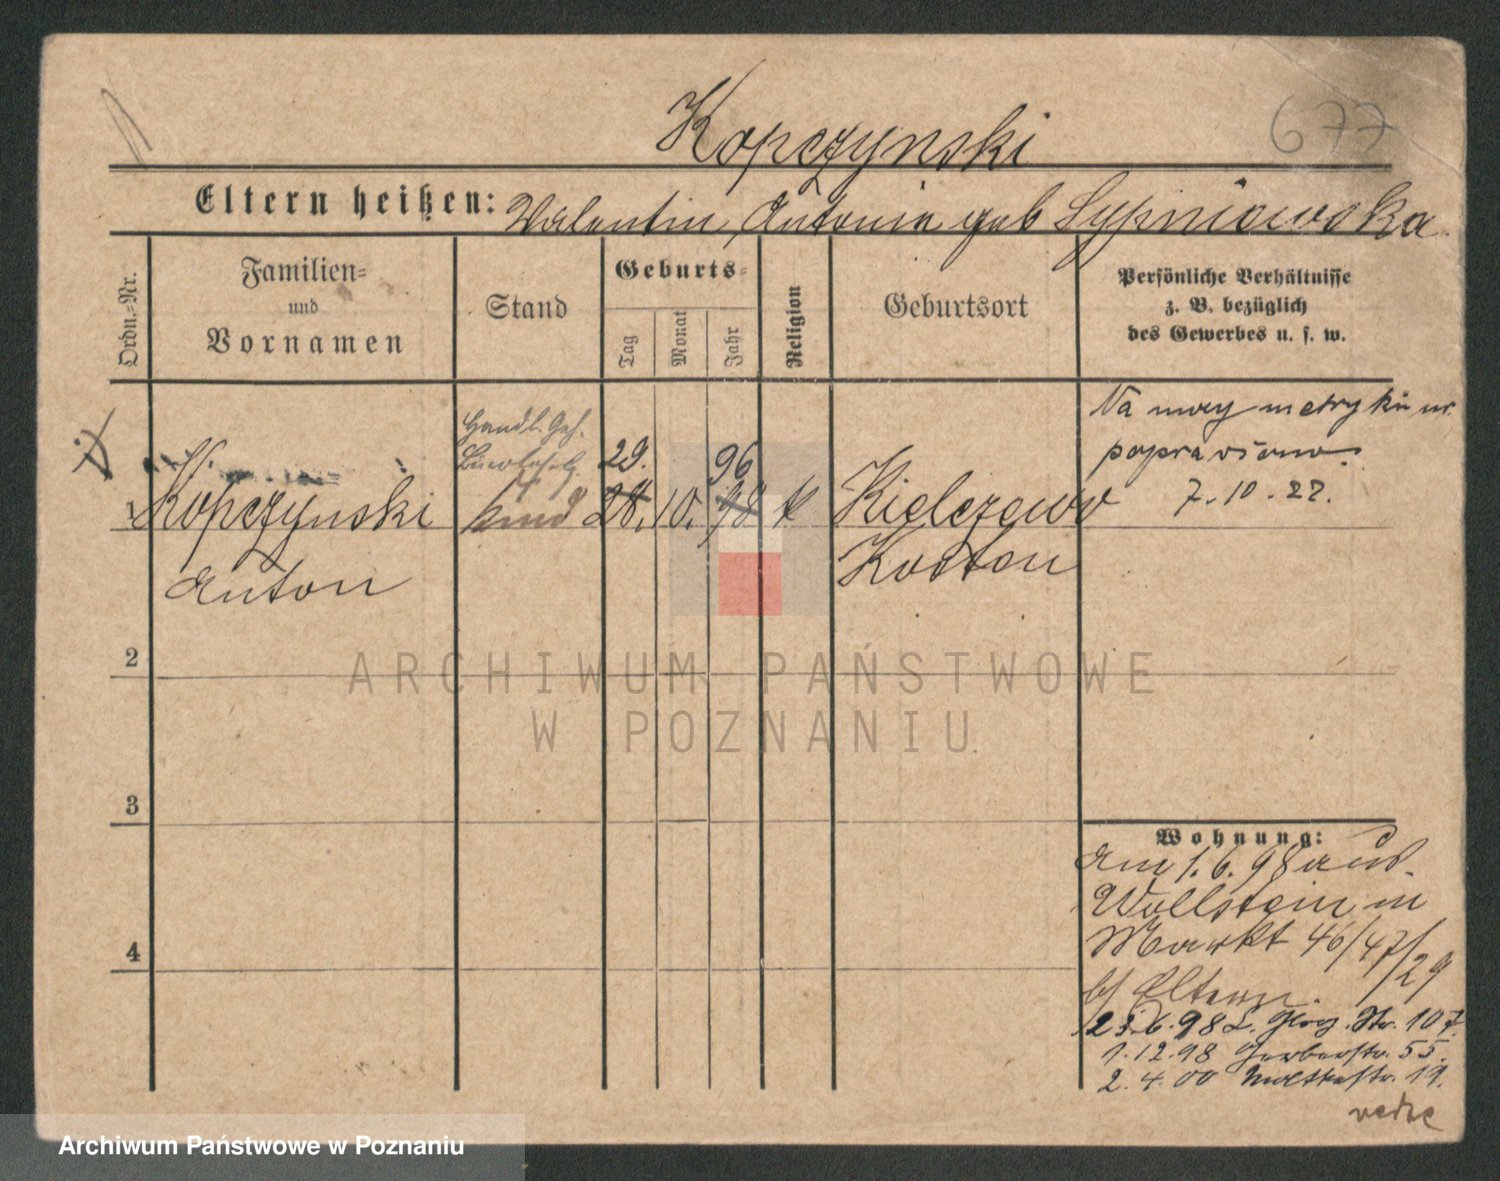 677
Kopczynski
Eltern heißen: Valentin, Antonie geb Sypniewska
Ordn.-Nr.
Familien-
und
Vornamen
Stand
Geburts-
Tag
Monat
Jahr
Religion
Geburtsort
Persönliche Verhältnisse
z. B. bezüglich
des Gewerbes u. s. w.
Handl. Geh.
29. 96
1 Kopczynski Kind 28. 10. 98 k Kielczewo
Anton Kosten
Na mocy metryki ur.
poprawiono.
7.10.22.
2
3
4
Wohnung:
Am 1.6.98 aus
Wollstein in
Markt 46/47/29
b/ Eltern.
23.6.98 L. Glog. Str. 107.
1.12.98 Gerberstr. 55.
2.4.00 Moltkestr. 19.
verte
ARCHIWUM PAŃSTWOWE
W POZNANIU
Archiwum Państwowe w Poznaniu